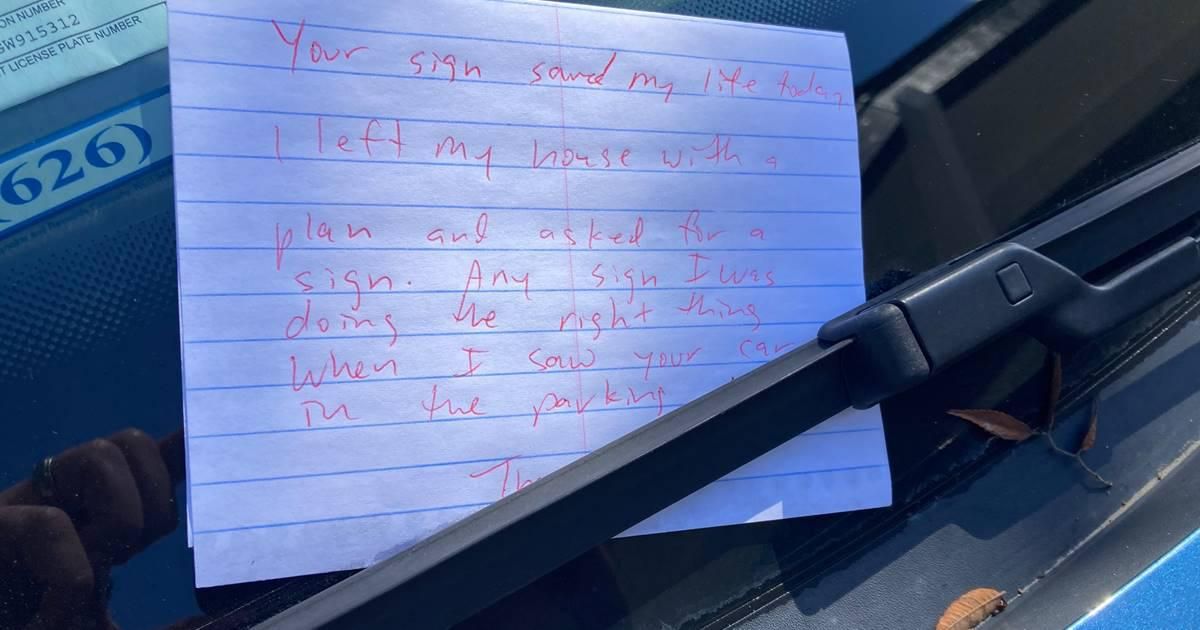 ON NUMBER
GW915312
T LICENSE PLATE NUMBER
(626)
Your sign saved my life today
I left my house with a
plan and asked for a
sign. Any sign I was
doing the right thing
When I saw your car
in the parking
Th